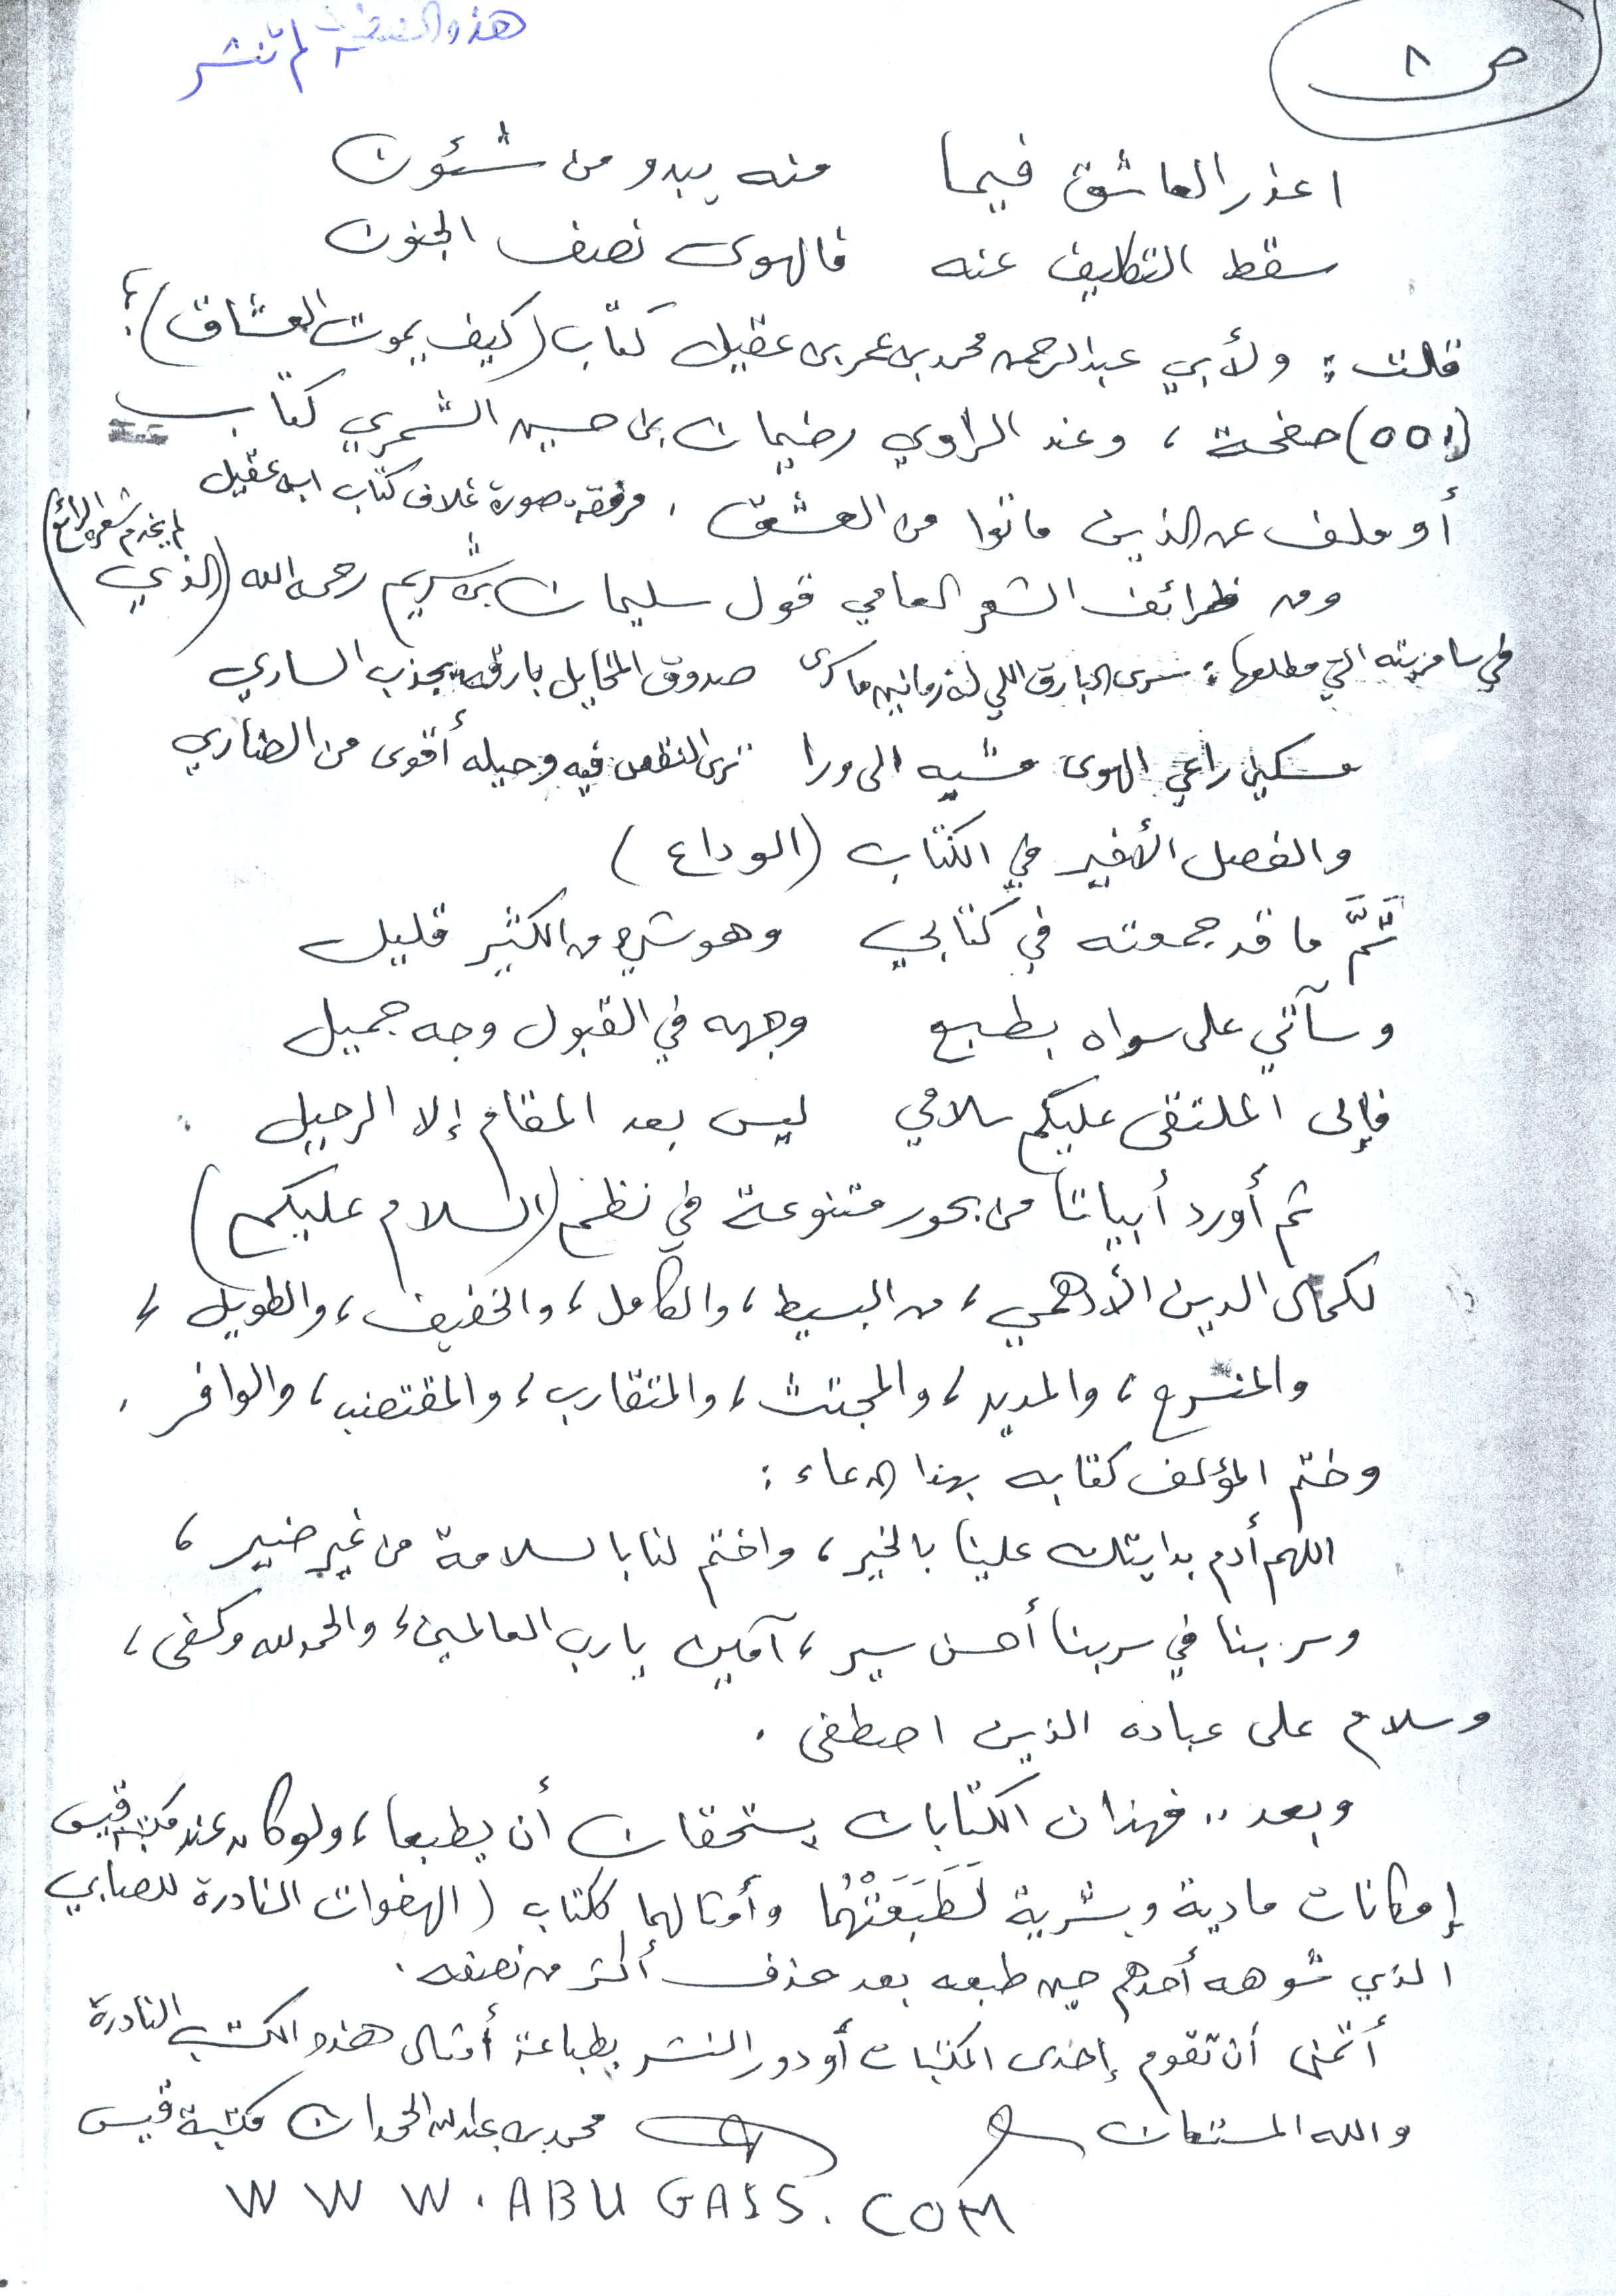 هذه الصفحة لم تنشر
ص ٨
اعذر العاشق فيما منه يبدو من شئون
سقط التكليف عنه فالهوى نصف الجنون
قلت : ولأبي عبدالرحمن محمد بن عمر بن عقيل كتاب (كيف يموت العشاق) ؛
(٥٥١) صفحة ، وعند الراوي رضيمان بن حسين الشمري كتاب
أو ملف عن الذين ماتوا من العشق . مرفقه صورة غلاف كتاب ابن عقيل
ومن ظرائف الشعر العامي قول سليمان بن شريم رحمه الله (الذي لم يخدم شعره الرائع)
في سامريته التي مطلعها : سرى البارق اللي له زمانين ما سرى صدوق المخايل بارقه يجذب الساري
مسكين راعي الهوى مشيه الى ورا ترى النقص فيه وحيله أقوى من الضاري
والفصل الأخير في الكتاب (الوداع)
تَمَّ ما قد جمعته في كتابي وهو شيء من الكثير قليل
وسآتي على سواه بطبع وجهه في القبول وجه جميل
فإلى الملتقى عليكم سلامي ليس بعد المقام إلا الرحيل
ثم أورد أبياتا من بحور متنوعة في نظم (السلام عليكم)
لكمال الدين الأدهمي ، من البسيط ، والكامل ، والخفيف ، والطويل ،
والمنسرح ، والمديد ، والمجتث ، والمتقارب ، والمقتضب ، والوافر .
وختم المؤلف كتابه بهذا الدعاء :
اللهم أدم بدايتك علينا بالخير ، واختم لنا بالسلامة من غير ضير ،
وسر بنا في سربنا أحسن سير ، آمين يا رب العالمين ، والحمد لله وكفى ،
وسلام على عباده الذين اصطفى .
وبعد .. فهذان الكتابان يستحقان أن يطبعا ، ولو كان عند مكتبة قيس
إمكانات مادية وبشرية لَطَبَعَتْهُما وأمثالهما ككتاب (الهفوات النادرة للصابي
الذي شوهه أحدهم حين طبعه بعد حذف أكثر من نصفه .
أتمنى أن تقوم إحدى المكتبات أو دور النشر بطباعة أمثال هذه الكتب النادرة
والله المستعان محمد بن عبدالله الحمدان مكتبة قيس
WWW.ABUGAISS.COM